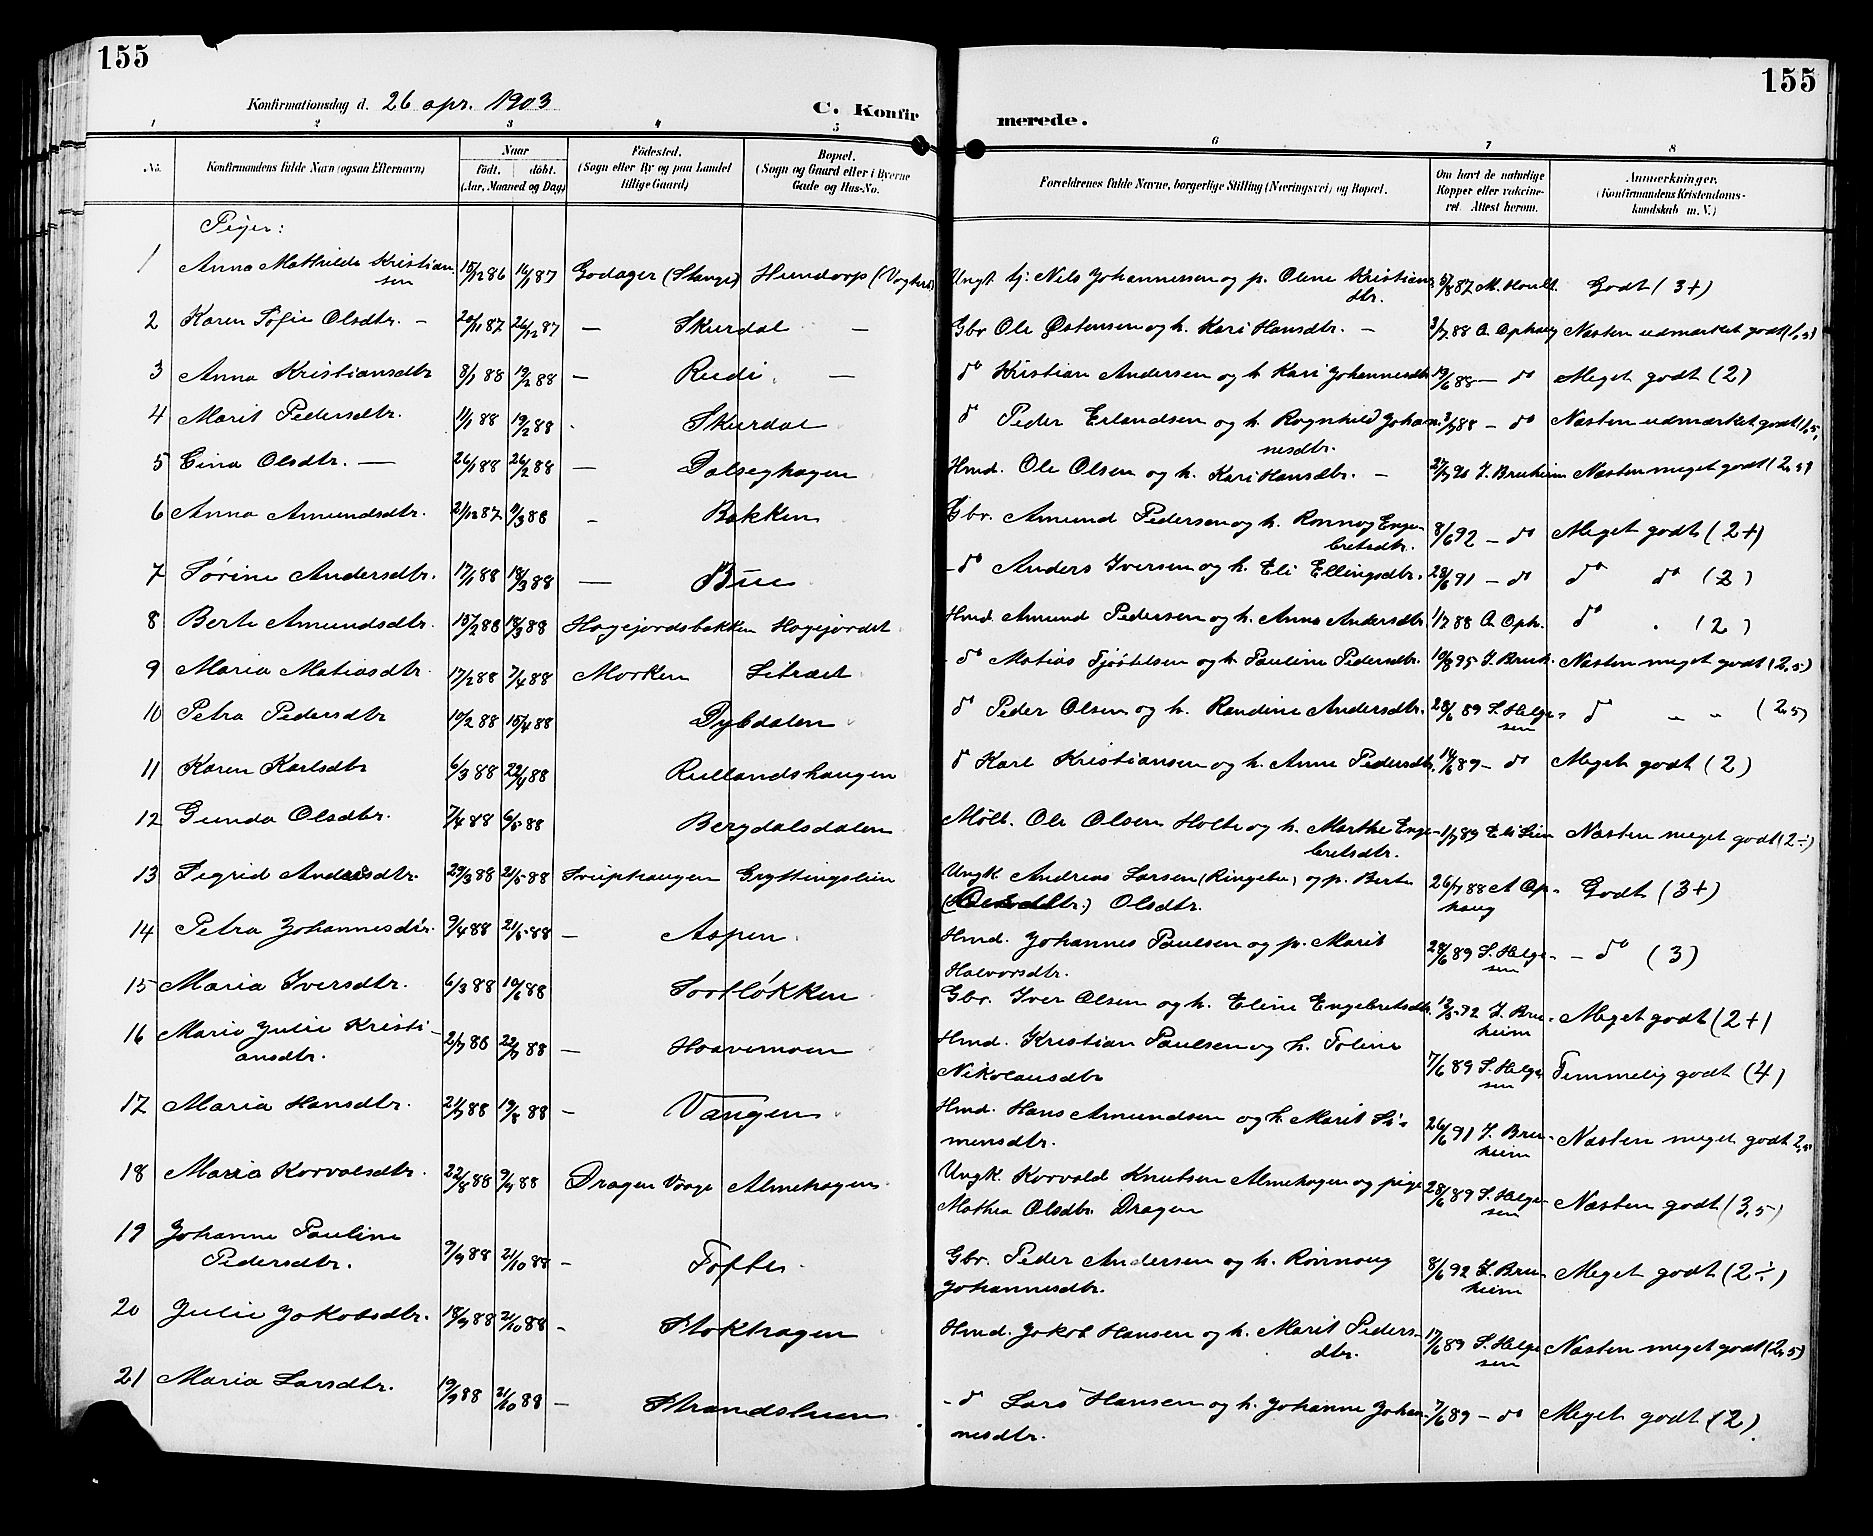 155
155
Konfirmationsdag d. 26 apr. 1903
C. Konfirmerede.
1 2 3 4 5 6 7 8
No. Konfirmandens fulde Navn (ogsaa Efternavn) Naar Fødested. Bopæl. Forældrenes fulde Navne, borgerlige Stilling (Næringsvei) og Bopæl. Om havt de naturlige Anmerkninger.
født. døbt. (Sogn eller By og paa Landet (Sogn og Gaard eller i Byerne Kopper eller vakcine- (Konfirmandens Kristendoms-
(Aar, Maaned og Dag) tillige Gaard) Gade og Hus-No. ret. Attest herom. kundskab m. V.)
Piger:
1 Anna Mathilde Kristian- 15/12 86 16/1 87 Godager (Stange) Hundorp Ungk. Nils Johannessen og p. Oline Kristians- 87 Godt (3+)
sen dtr.
2 Karen Sofie Olsdtr. — 20/11 87 26/12 87 — Skurdal — Gbr Ole Østensen og h. Kari Hansdtr. — 88 A. Ophaug Næsten udmærket godt (1,5)
3 Anna Kristiansdtr 8/1 88 19/2 88 — Rudi — do Kristian Andersen og h. Kari Johannesdtr. 19/6 88 — do Meget godt (2)
4 Marit Pedersdtr. 11/1 88 19/2 88 Skurdal do Peder Erlandsen og h. Rognhild Johan- 88 — do Næsten udmærket godt 1,5
nesdtr.
5 Lina Olsdtr. — 26/1 88 26/2 88 — Dalseghagen Hmd. Ole Olsen og h. Kari Hansdtr. — J. Bruheim Næsten meget godt (2,5)
6 Anna Amundsdtr. 21/12 87 11/3 88 — Bakken Gbr. Amund Pedersen og h. Rønnog Enge- 8/6 92 — do Meget godt (2+)
bretsdtr.
7 Sørine Andersdtr. 17/1 88 18/3 88 — Bue — do Anders Iversen og h. Eli Ellingsdtr. 23/6 91 — do do do (2)
8 Berte Amundsdtr. 15/2 88 18/3 88 Hagejordsbakken Hagejordet Hmd. Amund Pedersen og h. Anna Andersdtr. 88 A. Oph. do (2)
9 Maria Matiasdtr. 17/2 88 7/4 88 Morken Sitræet - do Matias Tjøstelsen og h. Pauline Pedersdtr. 10/8 95 J. Bruh. Næsten meget godt (2,5)
10 Petra Pedersdtr 10/2 88 15/4 88 Dybdalen do Peder Olsen og h. Randine Andersdtr. 28/6 89 S. Helge- do „ „ (2,5)
sen
11 Karen Karlsdtr 6/3 88 22/4 88 Rullandshaugen do Karl Kristiansen og h. Anne Pedersdtr. 14/6 89 — do Meget godt (2)
12 Gunda Olsdtr. 7/4 88 6/5 88 Bergdalsdalen Møll. Ole Olsen Holte og h. Marthe Enge- 89 Næsten meget godt (2÷)
bretsdtr.
13 Sigrid Andersdtr. 29/3 88 21/5 88 Sviphaugen Gryttingslien Ungk. Andreas Larsen (Ringebu) og p. Berte 26/7 88 A Op- Godt (3+)
Olsdtr. haug
14 Petra Johannesdtr. 9/4 88 21/5 88 — Aspen Hmd. Johannes Paulsen og p. Marit 28/6 89 S. Helge- — do (3)
Halvorsdtr. sen
15 Maria Iversdtr. 6/3 88 10/6 88 Sorfløkken Gbr. Iver Olsen og h. Eline Engebretsdtr. 92 J. Bru- Meget godt (2+)
heim
16 Marie Julie Kristi- 2/7 88 22/7 88 — Haavemoen Hmd. Kristian Paulsen og h. Toline 7/6 89 S. Helge- Temmelig godt (4)
ansdtr. Nikolausdtr sen
17 Maria Hansdtr. 21/7 88 19/8 88 — Vangen Hmd. Hans Amundsen og h. Marit Si- 26/6 91 J. Bru- Næsten meget godt 2,5
mensdtr. heim
18 Maria Korvalsdtr. 22/8 88 9/9 88 Dragen Vaage Almehagen Ungk. Korvald Knutsen Almehagen og pige 28/6 89 S. Helge- Næsten godt (3,5)
Mathea Olsdtr. Dragen sen
19 Johanne Pauline 9/9 88 21/10 88 — Tofte Gbr. Peder Andersen og h. Rønnaug 8/6 92 J. Bru- Meget godt (2÷)
Pedersdtr. Johannesdtr. heim
20 Julie Jakobsdtr. 18/9 88 21/10 88 — Stokhagen Hmd. Jakob Hansen og h. Marit Peders- 17/6 89 S. Helge- Næsten meget godt (2,5)
dtr. sen
21 Maria Larsdtr. 19/9 88 21/10 88 — Strandslien - do Lars Hansen og h. Johanne Johan- 7/6 89 — do Meget godt (2).
nesdtr.